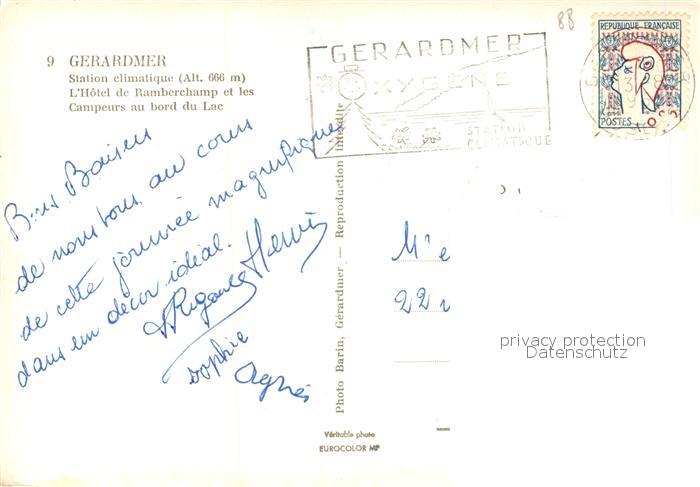 88
9 GERARDMER
Station climatique (Alt. 666 m)
L'Hôtel de Ramberchamp et les
Campeurs au bord du Lac
GERARDMER
OXYGÈNE
STATION
CLIMATIQUE
REPUBLIQUE FRANÇAISE
POSTES
Bons Baisers
de nous tous au cours
de cette journée magnifique
dans un décor idéal.
Henri
Sophie
Agnès
Photo Barin, Gérardmer — Reproduction interdite
221
privacy protection
Datenschutz
Véritable photo
EUROCOLOR MP